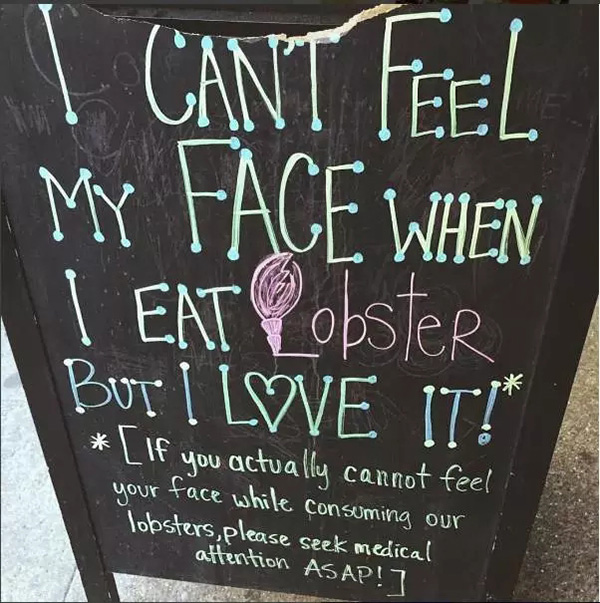 I CAN'T FEEL
MY FACE WHEN
I EAT LobsTER
BUT I L♡VE IT!*
*[If you actually cannot feel
your face while consuming our
lobsters, please seek medical
attention ASAP!]